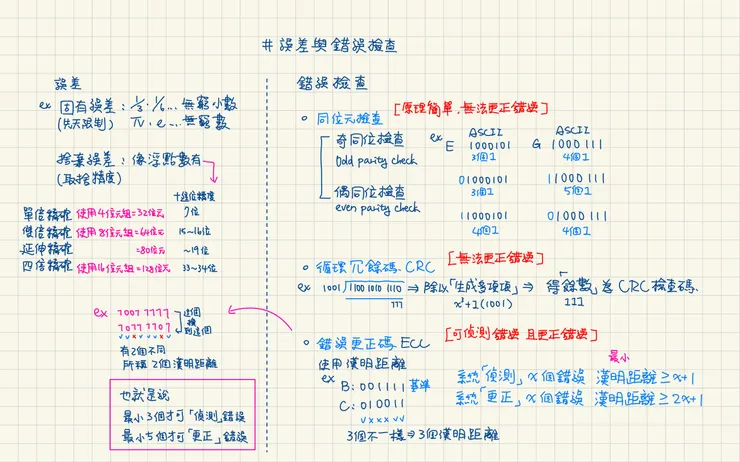 # 誤差與錯誤檢查
誤差
ex 固有誤差：1/3、1/6... 無窮小數
(先天限制) π、e... 無窮數
捨棄誤差：像浮點數有
(取捨精度)
十進位精度
單倍精確 使用4位元組=32位元 7位
雙倍精確 使用8位元組=64位元 15~16位
延伸精確 =80位元 ~19位
四倍精確 使用16位元組=128位元 33~34位
ex 1001 1111
1011 1101
這個
換
到這個
v v x v v v x v
有2個不同
所稱 2個漢明距離
也就是說
最小3個才可「偵測」錯誤
最小5個才可「更正」錯誤
錯誤檢查
同位元檢查 [原理簡單,無法更正錯誤]
奇同位檢查
Odd parity check
偶同位檢查
even parity check
ex ASCII ASCII
E 1000101 G 1000 111
3個1 4個1
01000101 11000 111
3個1 5個1
11000101 01000 111
4個1 4個1
循環冗餘碼 CRC [無法更正錯誤]
ex 1001 1100 1010 1110 ⇒ 除以「生成多項項」⇒ 得「餘數」為 CRC 檢查碼
111 x³+1(1001) 111
錯誤更正碼 ECC [可偵測錯誤 且更正錯誤]
使用漢明距離
ex
B: 001111 基準
C: 010011
v x x x v v
3個不一樣⇒3個漢明距離
最小
系統「偵測」x個錯誤 漢明距離≥x+1
系統「更正」x個錯誤 漢明距離≥2x+1